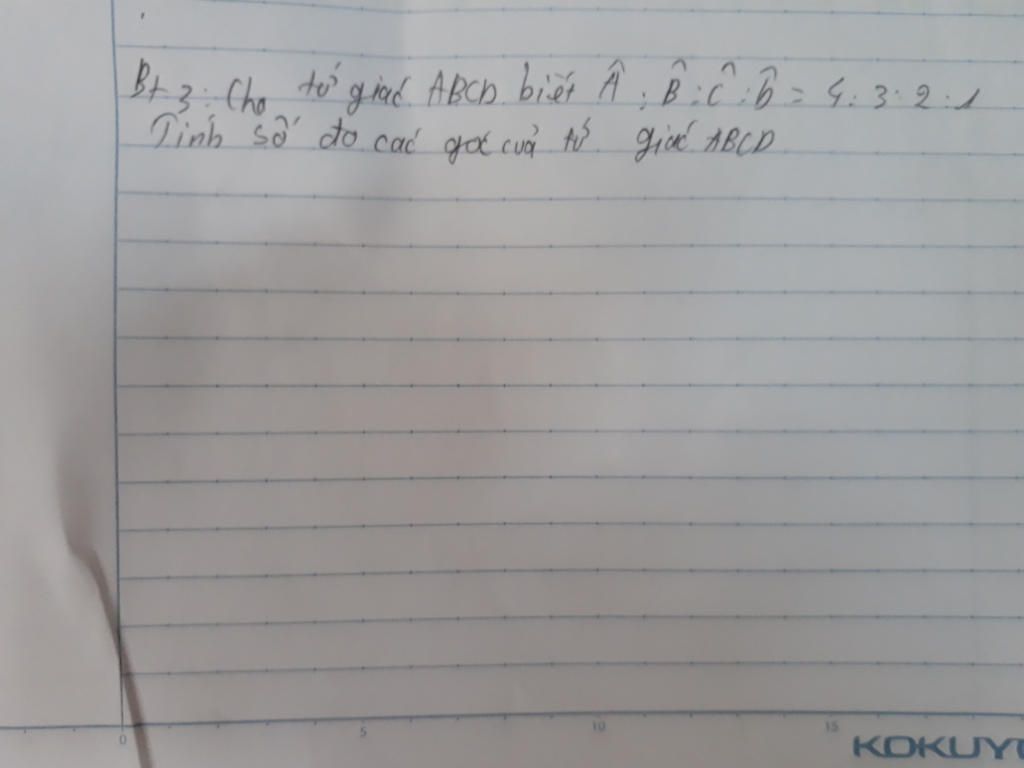 Bt 3: Cho tứ giác ABCD biết Â : B̂ : Ĉ : D̂ = 4 : 3 : 2 : 1
Tính số đo các góc của tứ giác ABCD
0 5 10 15
KOKUYO